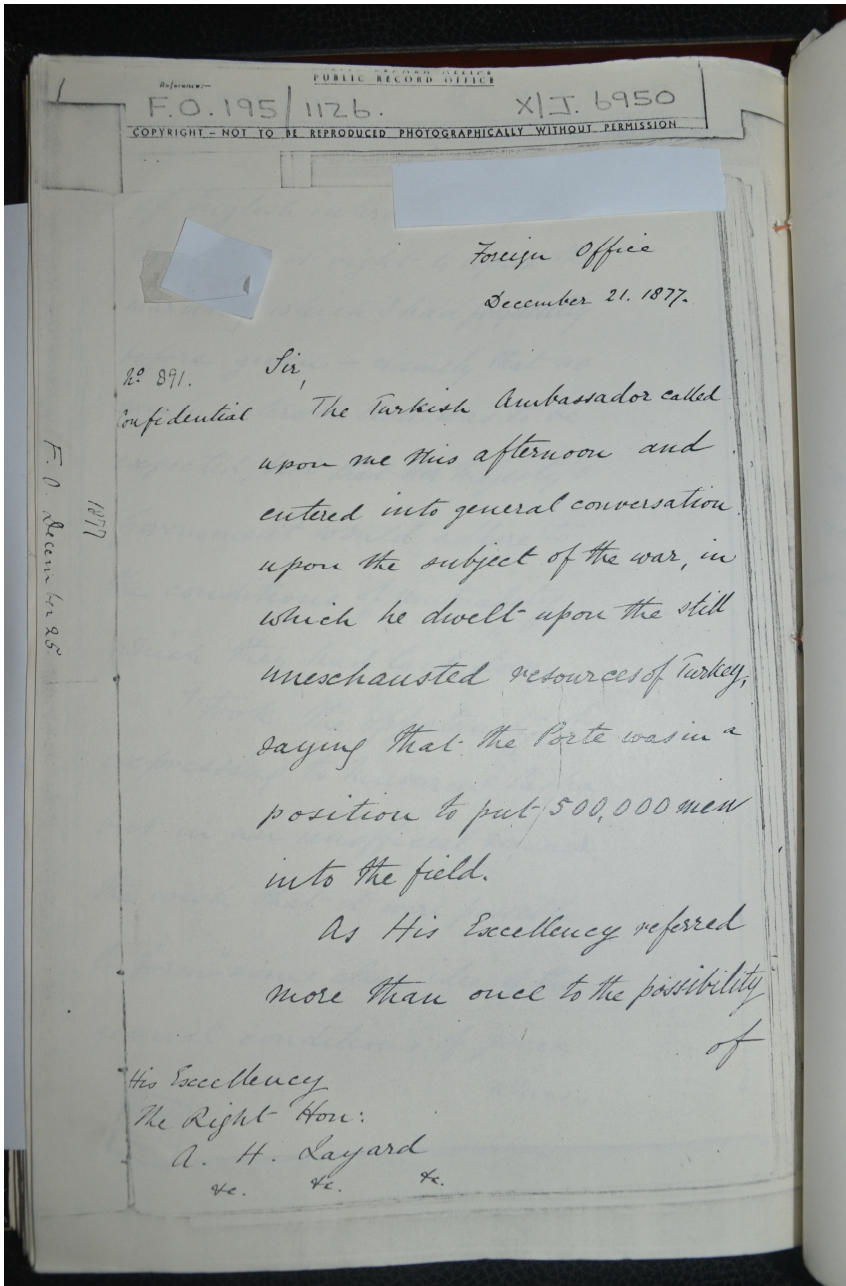 PUBLIC RECORD OFFICE
Reference:-
F.O. 195/1126. X/J. 6950
COPYRIGHT - NOT TO BE REPRODUCED PHOTOGRAPHICALLY WITHOUT PERMISSION
Foreign Office
December 21. 1877.
No 891.
Confidential
Sir,
The Turkish Ambassador called
upon me this afternoon and
entered into general conversation
upon the subject of the war, in
which he dwelt upon the still
unexhausted resources of Turkey,
saying that the Porte was in a
position to put 500,000 men
into the field.
As His Excellency referred
more than once to the possibility
of
His Excellency
The Right Hon:
A. H. Layard
&c. &c. &c.
1877
F. O. December 25.